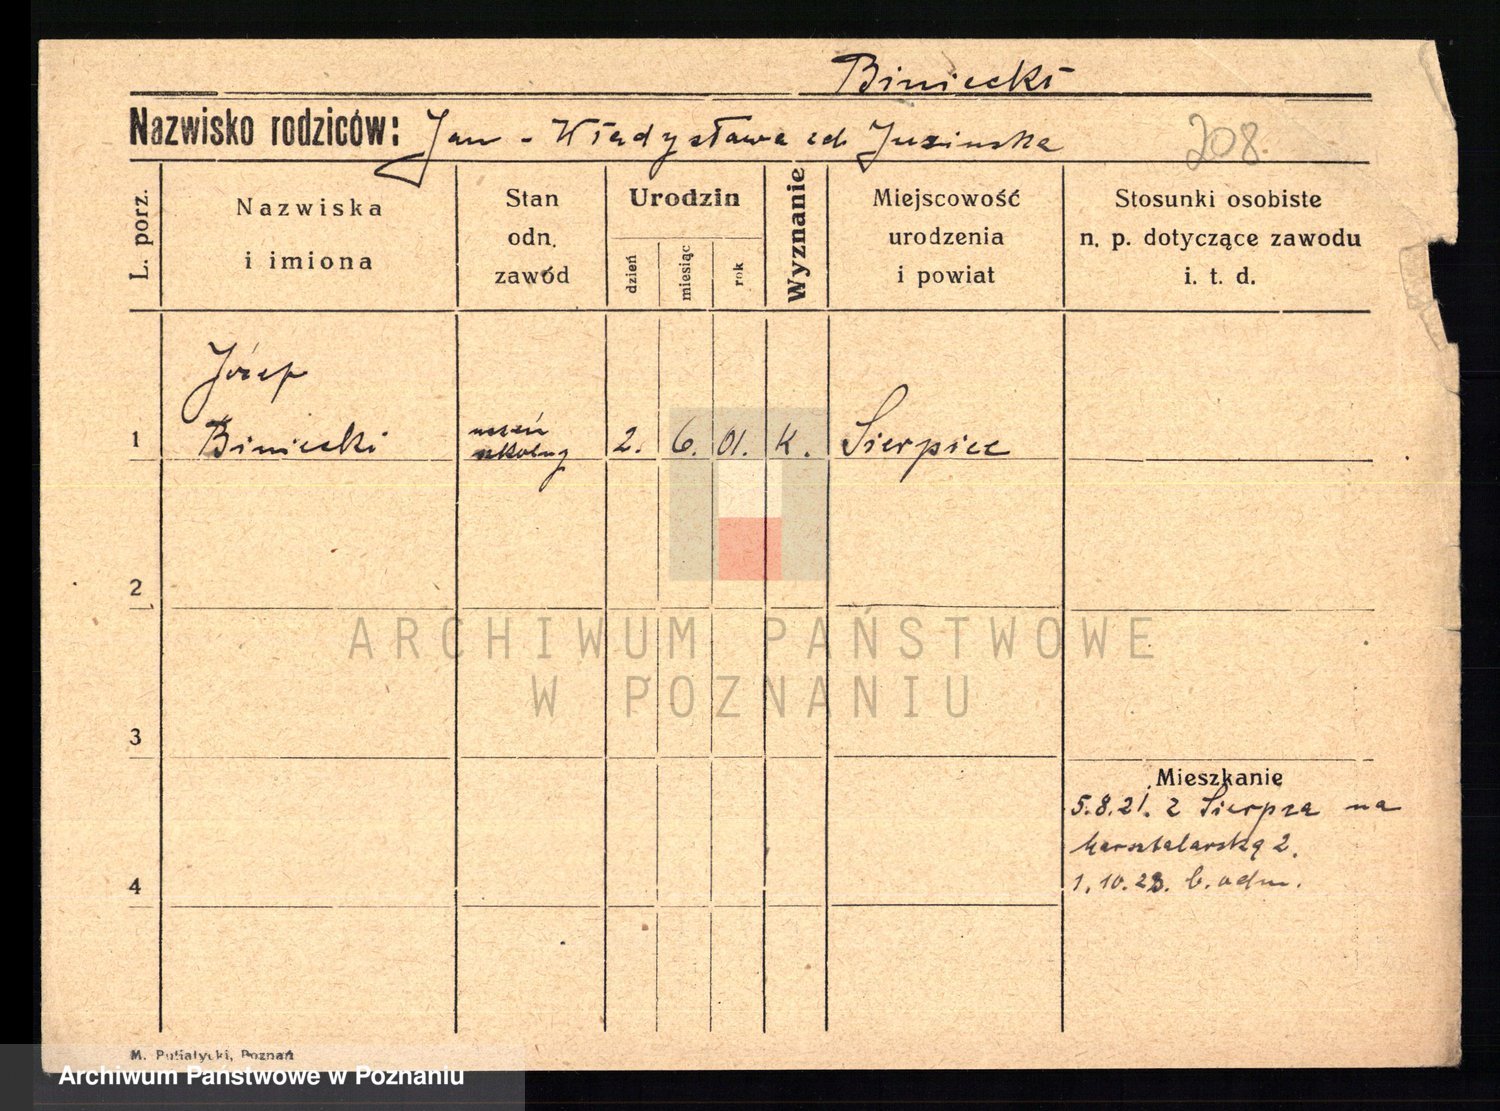 Biniecki
Nazwisko rodziców: Jan - Władysława zd Juzinska
208.
L. porz.
Nazwiska
i imiona
Stan
odn.
zawód
Urodzin
dzień
miesiąc
rok
Wyznanie
Miejscowość
urodzenia
i powiat
Stosunki osobiste
n. p. dotyczące zawodu
i. t. d.
Józef
1 Biniecki uczeń szkolny 2. 6. 01. K. Sierpiec
2
3
4
Mieszkanie
5.8.21. z Sierpza na
Masztalarską 2.
1.10.23. b. adm.
ARCHIWUM PAŃSTWOWE
W POZNANIU
M. Putiatycki, Poznań
Archiwum Państwowe w Poznaniu